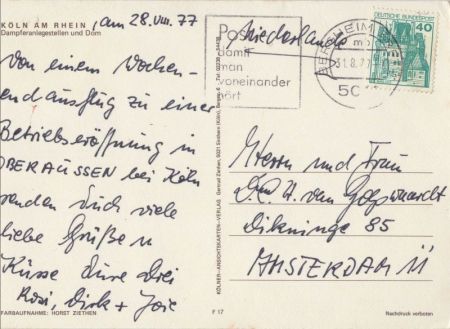 KÖLN AM RHEIN, am 28.VIII.77
Dampferanlegestellen und Dom
Von einem Wochen-
endausflug zu einer
Betriebseröffnung in
OBERAUSSEN bei Köln
senden Euch viele
liebe Grüße u
Küsse Eure Drei
Rosi, Dirk +
FARBAUFNAHME: HORST ZIETHEN
KÖLNER-ANSICHTSKARTEN-VERLAG, Gertrud Ziethen, 5021 Sinthern (Köln),
F 17
Post
damit
man
voneinander
hört
BERGHEIM
31.8.77
50
DEUTSCHE BUNDESPOST
40
Niederlande
Herrn und Frau
H. van
Dikninge 85
AMSTERDAM 11
Nachdruck verboten